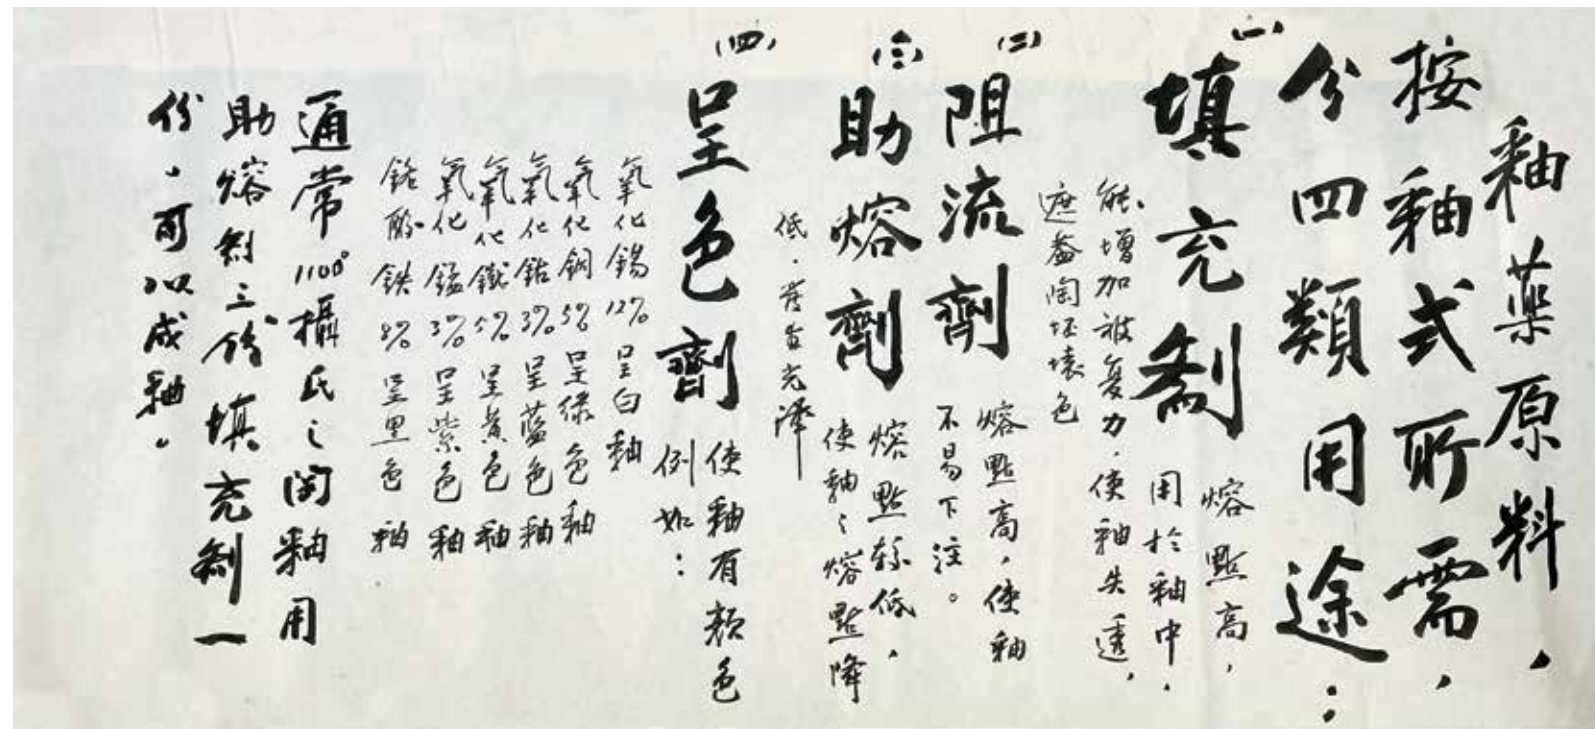 釉藥原料，
按釉式所需，
份四類用途：
(一)
填充剂
熔點高，
用於釉中，
能增加被复力．使釉失透，
遮蓋陶坯壊色
(二)
阻流劑
熔點高，使釉
不易下注。
(三)
助熔劑
熔點较低，
使釉之熔點降
低．发出光泽
(四)
呈色劑
使釉有颜色
例如：
氧化锡12%呈白釉
氧化铜5%呈绿色釉
氧化钴3%呈蓝色釉
氧化鐵5%呈黄色釉
氧化锰3%呈紫色釉
铬酸铁8%呈黑色釉
通常1100°攝氏之陶釉用
助熔剂三份填充剂一
份，可以成釉。